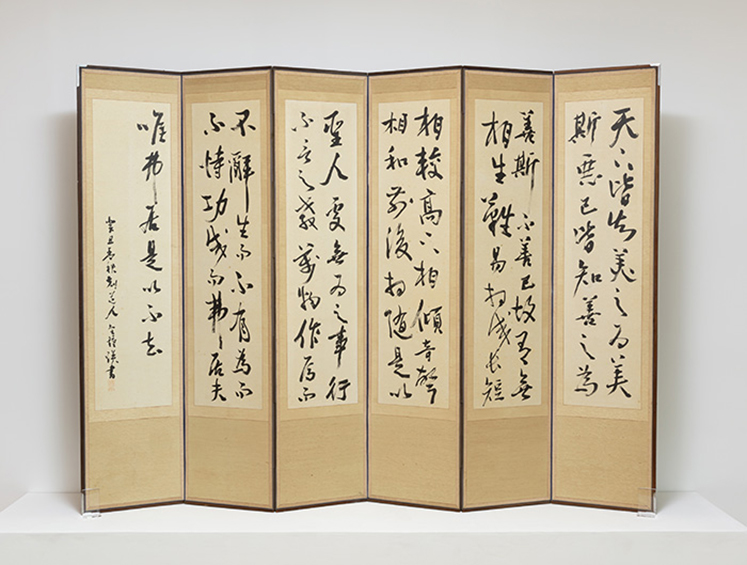 天下皆知美之為美
斯惡已皆知善之為
善斯不善已故有無
相生難易相成長短
相較高下相傾音聲
相和前後相隨是以
聖人處無為之事行
不言之教萬物作焉而
不辭生而不有為而
不恃功成而弗居夫
唯弗居是以不去
癸丑春道人書